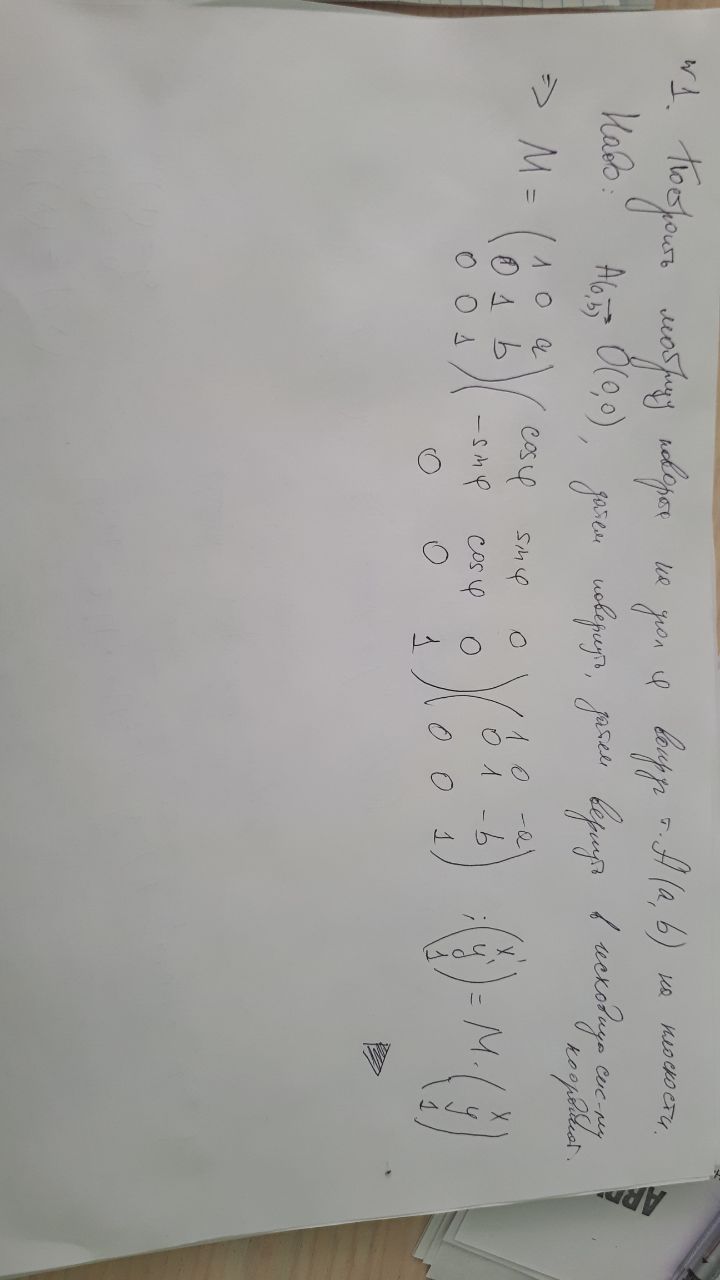 №1. Построить матрицу поворота на угол φ вокруг т. A(a, b) на плоскости.
Надо: A(a,b) → O(0,0), затем повернуть, затем вернуть в исходную сис-му
координат.
⇒ M = (1 0 a) (cosφ sinφ 0) (1 0 -a) ; (x') = M · (x)
(0 1 b) (-sinφ cosφ 0) (0 1 -b) (y') (y)
(0 0 1) (0 0 1) (0 0 1) (1) (1)